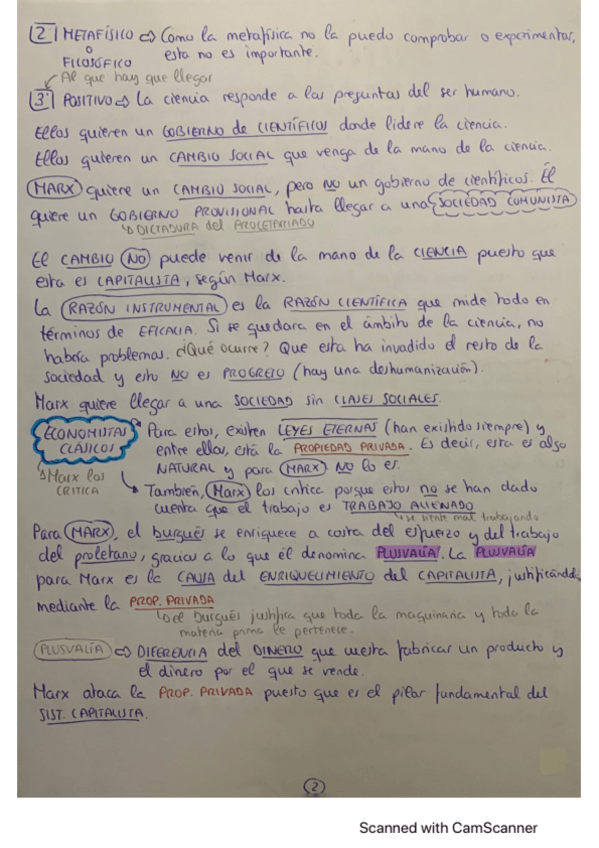 2 METAFÍSICO ⇨ Como la metafísica no la puedo comprobar o experimentar,
o
FILOSÓFICO
esta no es importante.
Al que hay que llegar
3 POSITIVO ⇨ La ciencia responde a las preguntas del ser humano.
Ellos quieren un GOBIERNO de CIENTÍFICOS donde lidere la ciencia.
Ellos quieren un CAMBIO SOCIAL que venga de la mano de la ciencia.
MARX quiere un CAMBIO SOCIAL, pero NO un gobierno de científicos. Él
quiere un GOBIERNO PROVISIONAL hasta llegar a una SOCIEDAD COMUNISTA
↳ DICTADURA del PROLETARIADO
El CAMBIO NO puede venir de la mano de la CIENCIA puesto que
esta es CAPITALISTA, según Marx.
La RAZÓN INSTRUMENTAL es la RAZÓN CIENTÍFICA que mide todo en
términos de EFICACIA. Si se quedara en el ámbito de la ciencia, no
habría problemas. ¿Qué ocurre? Que esta ha invadido el resto de la
sociedad y esto NO es PROGRESO (hay una deshumanización).
Marx quiere llegar a una SOCIEDAD sin CLASES SOCIALES.
ECONOMISTAS
CLÁSICOS
Para estos, existen LEYES ETERNAS (han existido siempre) y
entre ellas, está la PROPIEDAD PRIVADA. Es decir, esta es algo
NATURAL y para MARX NO lo es.
↳ Marx los
CRITICA
También, Marx los critica porque estos no se han dado
cuenta que el trabajo es TRABAJO ALIENADO
↳ se siente mal trabajando
Para MARX, el burgués se enriquece a costa del esfuerzo y del trabajo
del proletario, gracias a lo que él denomina PLUSVALÍA. La PLUSVALÍA
para Marx es la CAUSA del ENRIQUECIMIENTO del CAPITALISTA, justificándola
mediante la PROP. PRIVADA
↳ el burgués justifica que toda la maquinaria y toda la
materia prima le pertenece.
PLUSVALÍA ⇨ DIFERENCIA del DINERO que cuesta fabricar un producto y
el dinero por el que se vende.
Marx ataca la PROP. PRIVADA puesto que es el pilar fundamental del
SIST. CAPITALISTA.
2
Scanned with CamScanner